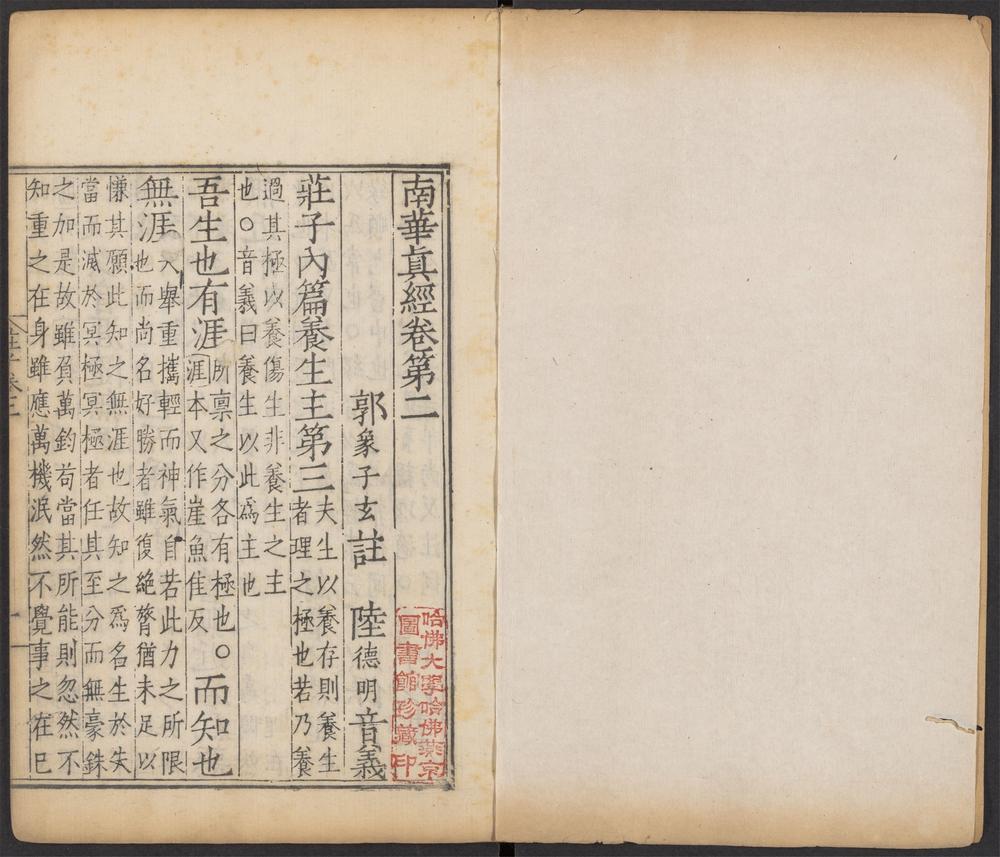 南華眞經卷第二
郭象子玄註 陸德明音義
莊子內篇養生主第三夫生以養存則養生
者理之極也若乃養
過其極以養傷生非養生之主
也○音義曰養生以此爲主也
吾生也有涯所禀之分各有極也○
涯本又作崖魚隹反
而知也
無涯夫舉重攜輕而神氣自若此力之所限
也而尚名好勝者雖復絶膂猶未足以
慊其願此知之無涯也故知之爲名生於失
當而滅於冥極冥極者任其至分而無豪銖
之加是故雖負萬鈞苟當其所能則忽然不
知重之在身雖應萬機泯然不覺事之在已
哈佛大學哈佛燕京
圖書館珍藏印